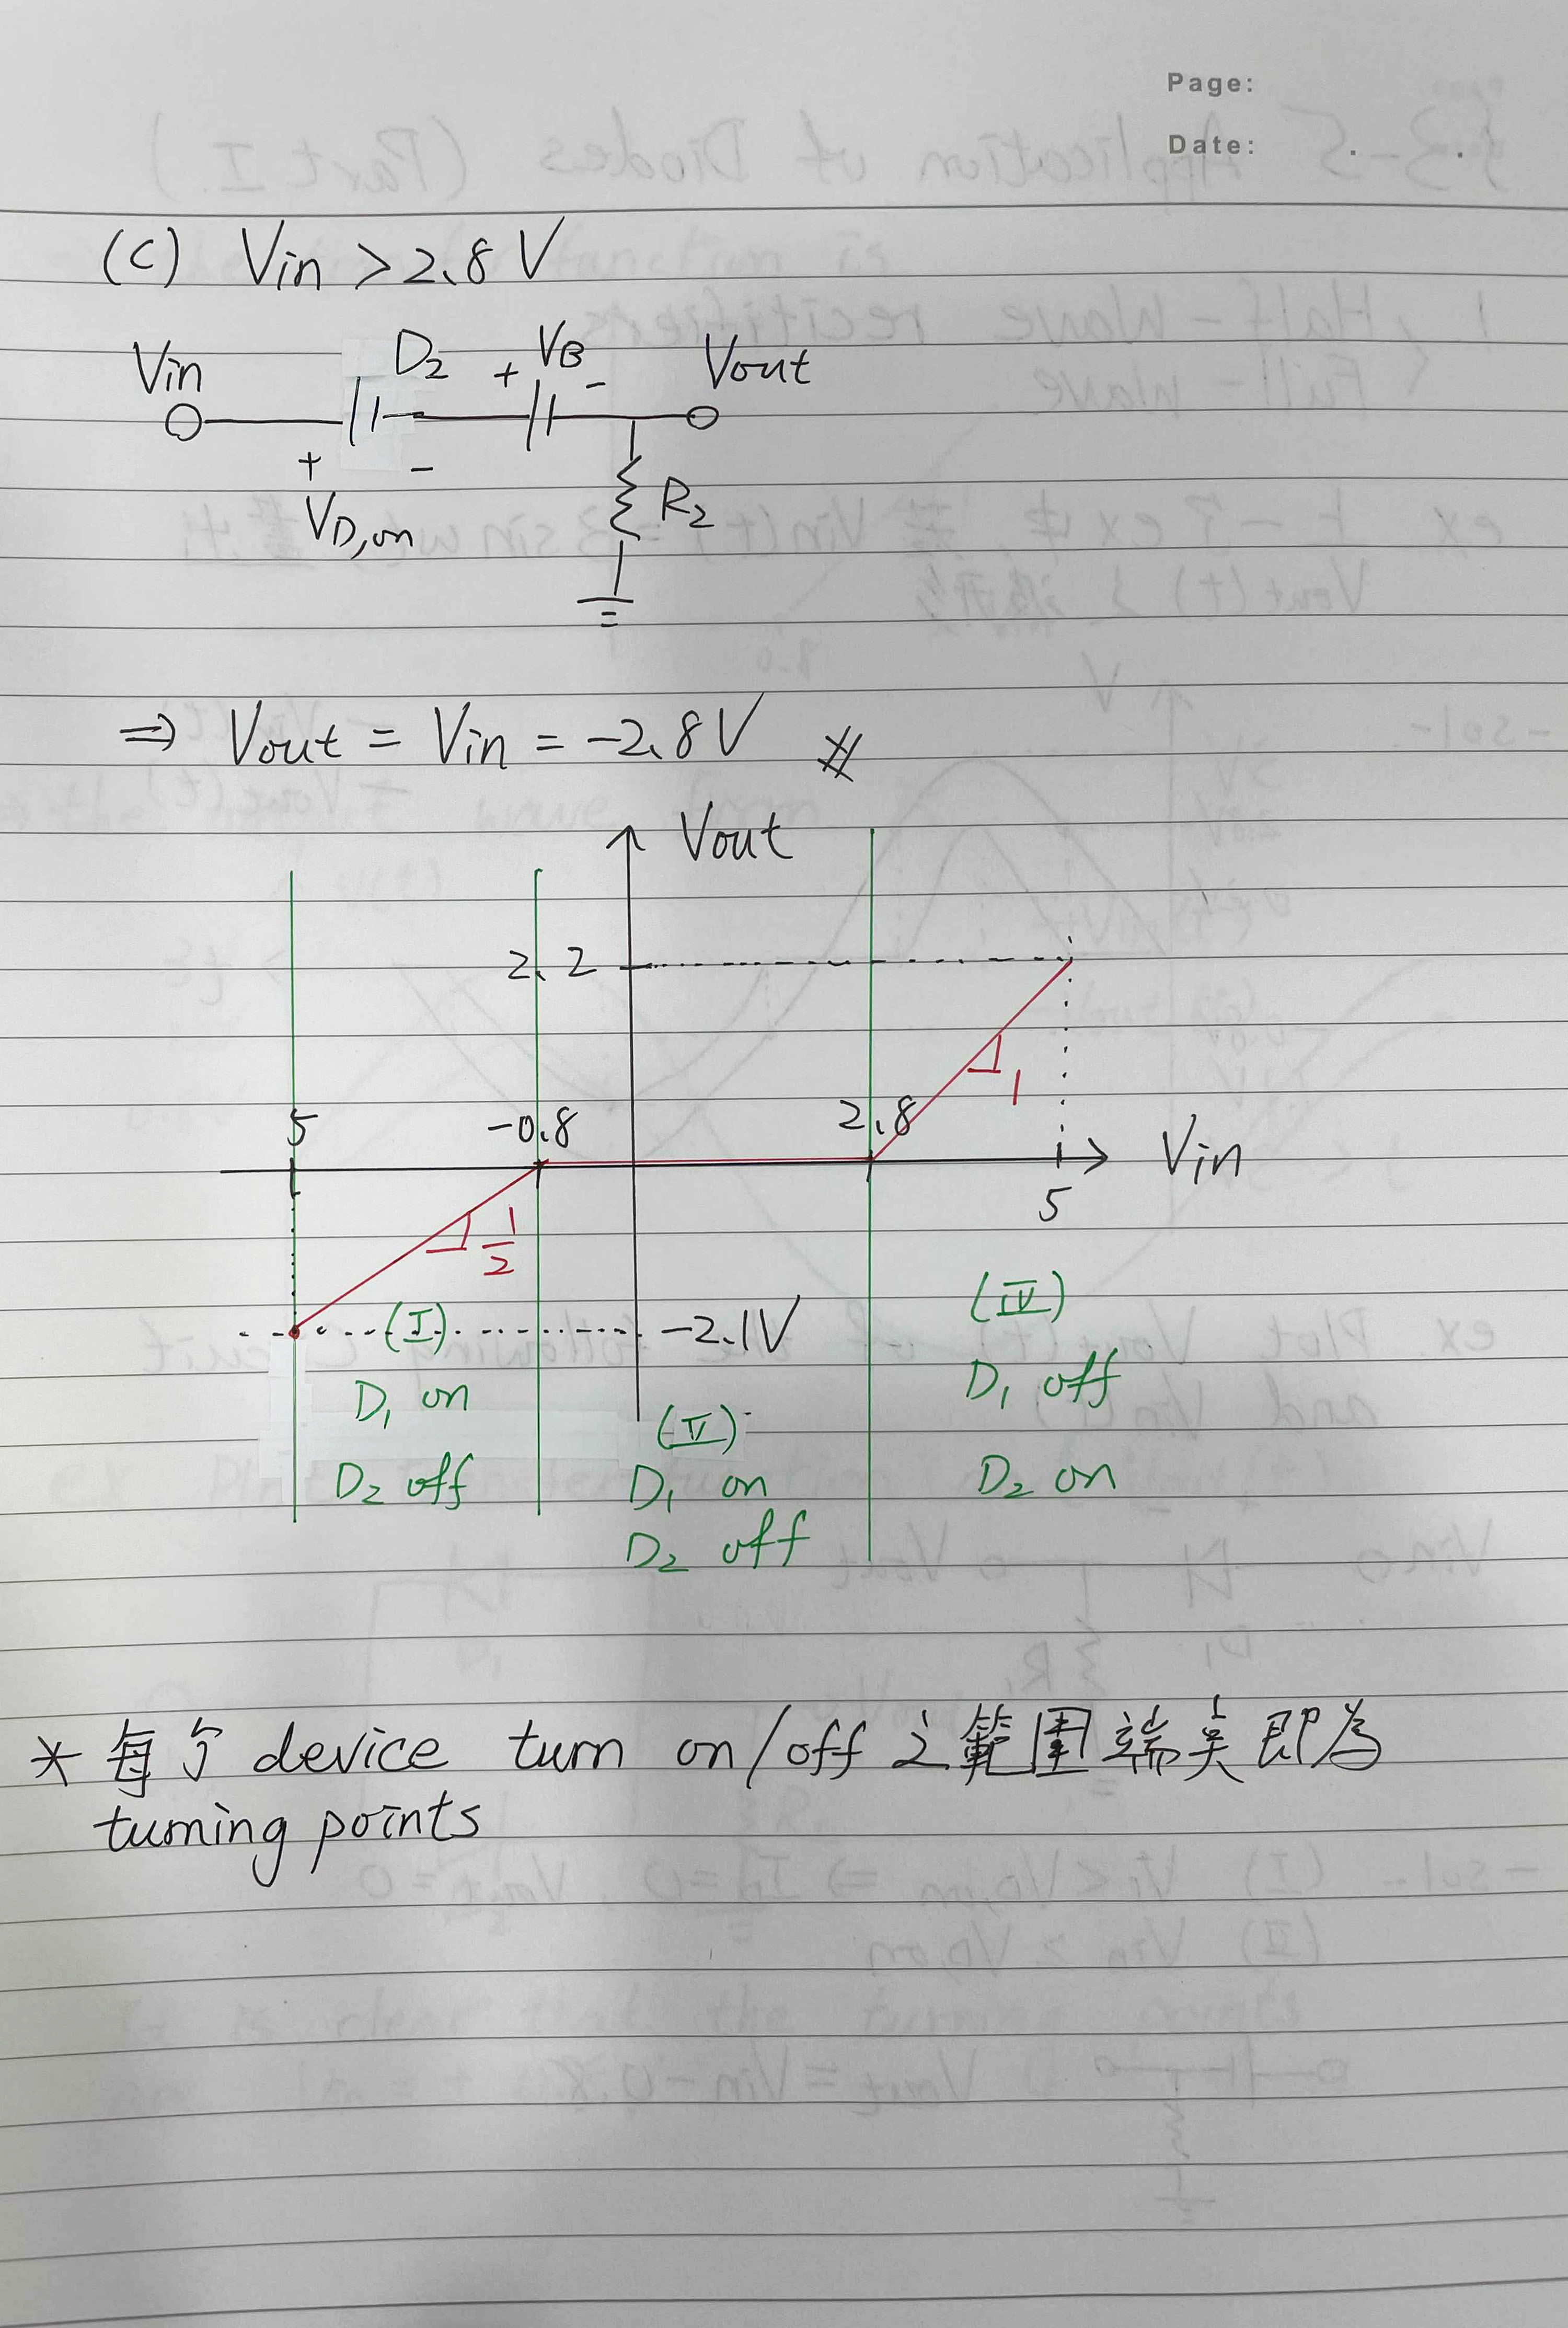 Page:
Date: . .
(C) Vin > 2.8 V
Vin D₂ + VB - Vout
+ -
VD,on R₂
⇒ Vout = Vin = -2.8V #
Vout
2.2
1
5 -0.8 2.8
Vin
5
1/2
(I) -2.1V (IV)
D₁ on D₁ off
(II)
D₂ off D₁ on D₂ on
D₂ off
* 每个 device turn on/off 之範圍端點即為
turning points